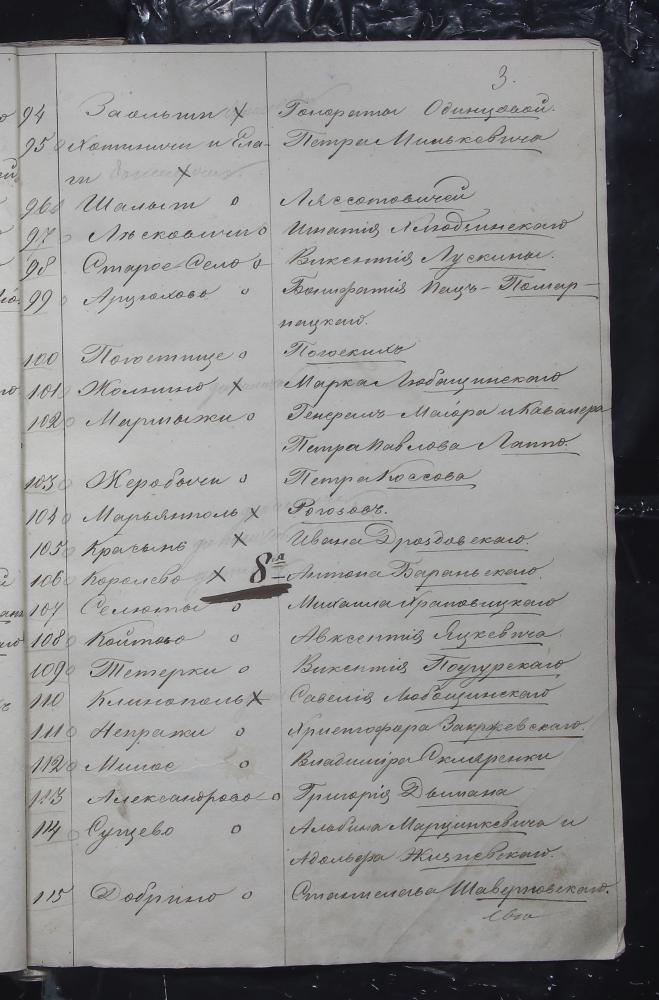 3.
94 Заольши х Гонораты Одинцовой.
95 Хотиничи и Ела- Петра Милькевича
ги х
96 Шалыги о Лиссотовичей
97 Лѣсковичи о Игнатія Клюдзинскаго
98 Старое-Село о Викентія Лускины.
99 Арцюхово о Бонифатія Пацъ-Помар-
нацкаго.
100 Погостище о Погоскихъ
101 Жолнино х Марка Любощинскаго
102 Мармыжи о Генералъ-Маіора и Кавалера
Петра Павлова Лаппо.
103 Жеробычи о Петра Коссова
104 Марьянполь х Рогозовъ.
105 Красынь х Ивана Дроздовскаго.
106 Королево х 8я Антона Бараньскаго.
107 Селюты о Михаила Храповицкаго
108 Койтово о Авксентія Яцкевича.
109 Тетерки о Викентія Подгурскаго
110 Клинополь х Савелія Любощинскаго
111 Непражи о Христофора Закржевскаго.
112 Милое о Владиміра Скляренки
113 Александрово о Григорія Дымана
114 Сущево о Альбина Марцинкевича и
Адольфа Жизневскаго.
115 Добрино о Станислава Шаверновскаго.